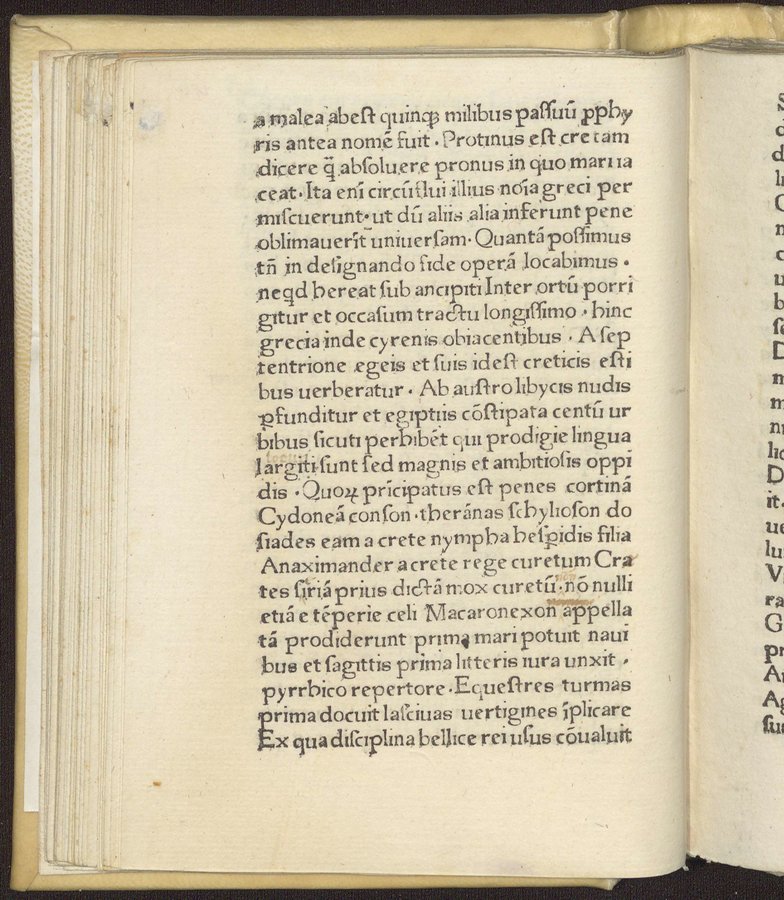 a malea abest quinqꝫ milibus passuū ꝓphy
ris antea nomē fuit . Protinus est cretam
dicere q̄ absoluere pronus in quo mari ia
ceat. Ita enī circūflui illius noīa greci per
miscuerunt. ut dū aliis alia inferunt pene
oblimauerīt uniuersam. Quantā possimus
tñ in designando fide operā locabimus .
neqd hereat sub ancipiti Inter ortū porri
gitur et occasum tractu longissimo . hinc
grecia inde cyrenis obiacentibus . A sep
tentrione egeis et suis idest creticis esti
bus uerberatur . Ab austro libycis nudis
ꝓfunditur et egiptiis cōstipata centū ur
bibus sicuti perhibēt qui prodigie lingua
largiti sunt sed magnis et ambitiosis oppi
dis . Quoꝝ prīcipatus est penes cortinā
Cydoneā conson .therānas schylioson do
siades eam a crete nympha hesꝑidis filia
Anaximander a crete rege curetum Cra
tes siriā prius dictā mox curetū . nō nulli
etiā e tēperie celi Macaronexon appella
tā prodiderunt prima mari potuit naui
bus et sagittis prima litteris iura unxit .
pyrrhico repertore . Equestres turmas
prima docuit lasciuas uertigines īplicare
Ex qua disciplina bellice rei usus cōualuit